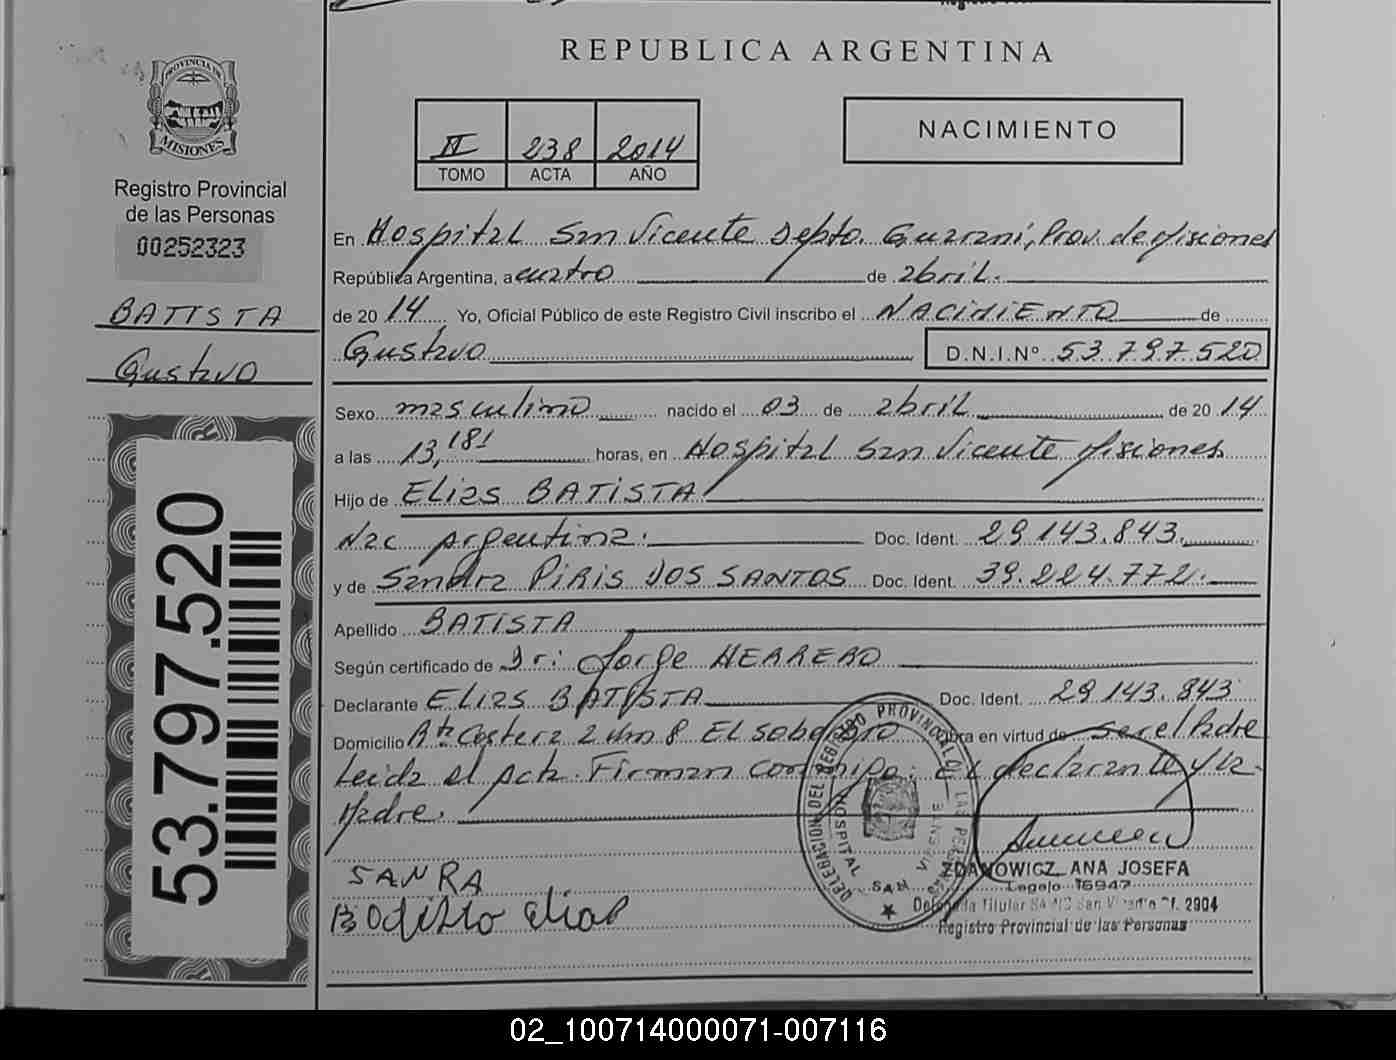 REPUBLICA ARGENTINA
PROVINCIA DE
MISIONES
Registro Provincial
de las Personas
00252323
BATISTA
Gustavo
53.797.520
II 238 2014
TOMO ACTA AÑO
NACIMIENTO
En Hospital San Vicente Depto. Guaraní, Prov. de Misiones
República Argentina, a cuatro de abril.
de 2014 Yo, Oficial Público de este Registro Civil inscribo el NACIMIENTO de
Gustavo D.N.I.Nº 53.797.520
Sexo masculino nacido el 03 de abril de 2014
a las 13,181 horas, en Hospital San Vicente Misiones
Hijo de Elias BATISTA
Nac Argentina. Doc. Ident. 29.143.843.
y de Sandra PIRIS DOS SANTOS Doc. Ident. 39.224.772.
Apellido BATISTA
Según certificado de Dr: Jorge HERRERO
Declarante Elias BATISTA Doc. Ident. 29.143.843
Domicilio Rta Costera 2 Km 8 El Obra en virtud de ser el Padre
Leida el Acta. Firman conmigo: El declarante y la
Madre.
SANRA
Batista elias
DELEGACION DEL REGISTRO PROVINCIAL DE LAS PERSONAS
HOSPITAL SAN VICENTE
ZDANOWICZ, ANA JOSEFA
Legajo 16947
Delegada Titular San Vicente Of. 2904
Registro Provincial de las Personas
02_100714000071-007116